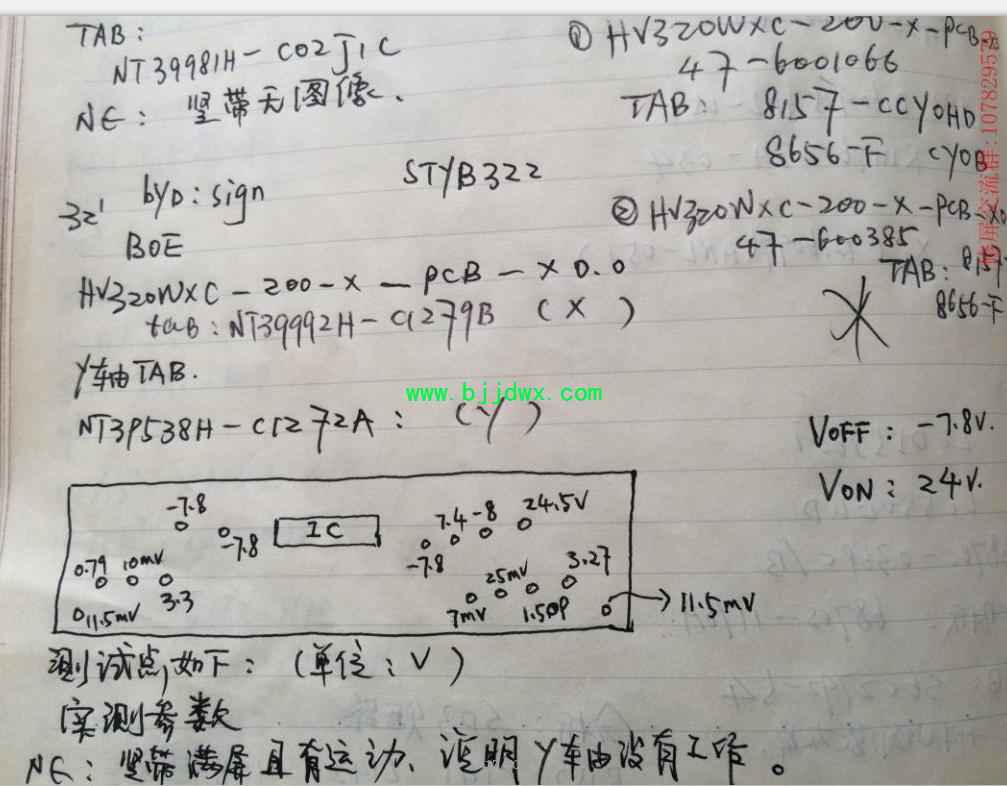 TAB:
NT39981H-C02J1C
NG: 竖带无图像.
① HV320WXC-200-X-PCB-X
47-6001066
TAB: 8157-CCY0HD
8656-F CY0B
STYB322
32' byD: sign
BOE
HV320WXC-200-X-PCB-X0.0
tab: NT39992H-C1279B (X)
② HV320WXC-200-X-PCB-X0
47-600385
TAB: 8157-
8656-F
Y轴TAB.
NT39538H-C1272A: (Y)
www.bjjdwx.com
VOFF: -7.8V.
VON: 24V.
-7.8
-7.8
IC
7.4 -8 24.5V
-7.8
0.79 10mV
3.3
11.5mV
3.27
25mV
7mV 1.50P
11.5mV
测试点,如下: (单位: V)
实测参数
NG: 竖带满屏且有运动、说明Y轴没有工作。
交流群: 107829579